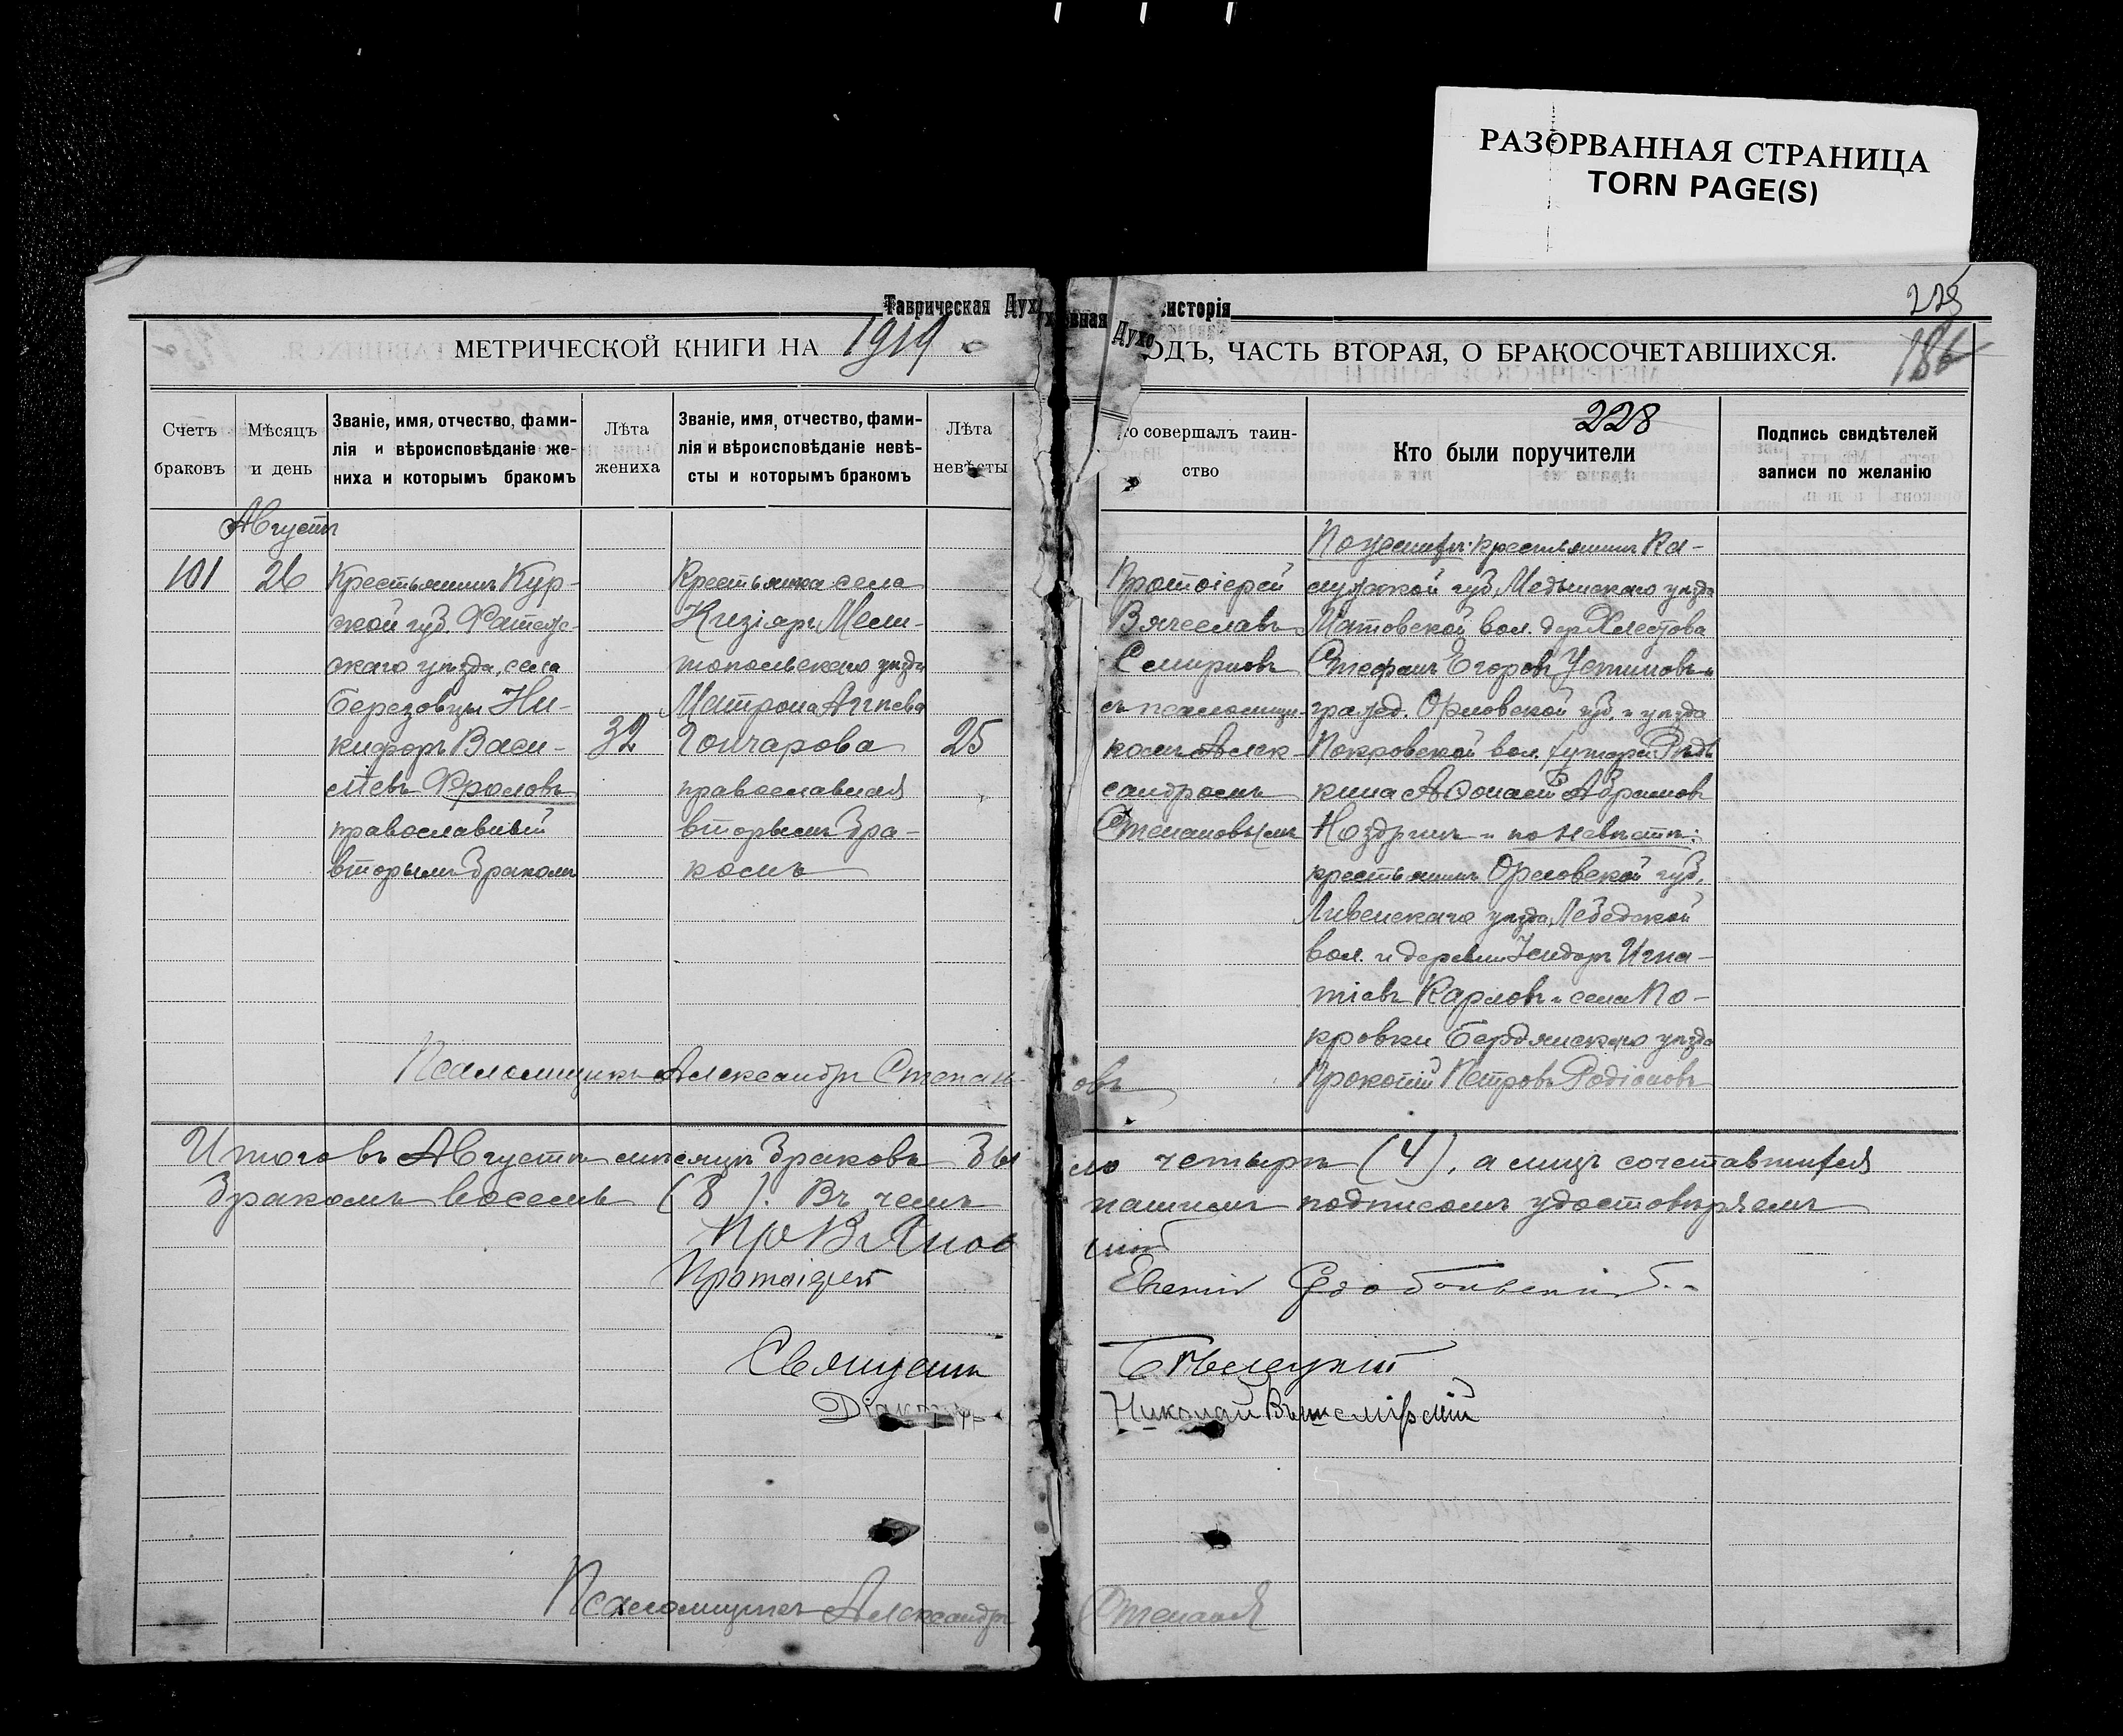 РАЗОРВАННАЯ СТРАНИЦА
TORN PAGE(S)
Таврическая Духовная Консисторія
225
МЕТРИЧЕСКОЙ КНИГИ НА 1919
ОДЪ, ЧАСТЬ ВТОРАЯ, О БРАКОСОЧЕТАВШИХСЯ.
186
228
Счетъ браковъ
Мѣсяцъ и день
Званіе, имя, отчество, фами-
лія и вѣроисповѣданіе же-
ниха и которымъ бракомъ
Лѣта жениха
Званіе, имя, отчество, фами-
лія и вѣроисповѣданіе невѣ-
сты и которымъ бракомъ
Лѣта невѣсты
то совершалъ таин-
ство
Кто были поручители
Подпись свидѣтелей
записи по желанію
Августъ
101
26
Крестьянинъ Кур-
ской губ. Фатеж-
скаго уѣзда, села
Березовцы Ни-
кифоръ Васи-
ліевъ Фроловъ
православный
вторымъ бракомъ
32
Крестьянка села
Кизіяръ Мели-
топольскаго уѣзда
Матрона Агѣева
Гончарова
православная
вторымъ бра-
комъ
25
Протоіерей
Вячеславъ
Смирновъ
съ псаломщи-
комъ Алек-
сандромъ
Степановымъ
По женихѣ: крестьянинъ Ка-
лужской губ, Медынскаго уѣзда
вол. дер Хлестова
Стефанъ Егоровъ Устиновъ и
гражд. Орловской губ. и уѣзда
Покровской вол. хутора
Абрамовъ
Ноздринъ и по невѣстѣ:
крестьянинъ Орловской губ,
Ливенскаго уѣзда, Лебедской
вол. и деревни Исидоръ Игна-
тіевъ Карловъ и села По-
кровки Бердянскаго уѣзда
Прокопій Петровъ Родіоновъ
Псаломщикъ Александръ Степановъ
Итого въ Августѣ мѣсяцѣ браковъ было четыре (4), а лицъ сочетавшихся
бракомъ восемь (8). Въ чемъ нашимъ подписомъ удостовѣряемъ
Протоіерей Евгеній
Священникъ Бѣлецкій
Діаконъ Николай
Псаломщикъ Александръ Степановъ